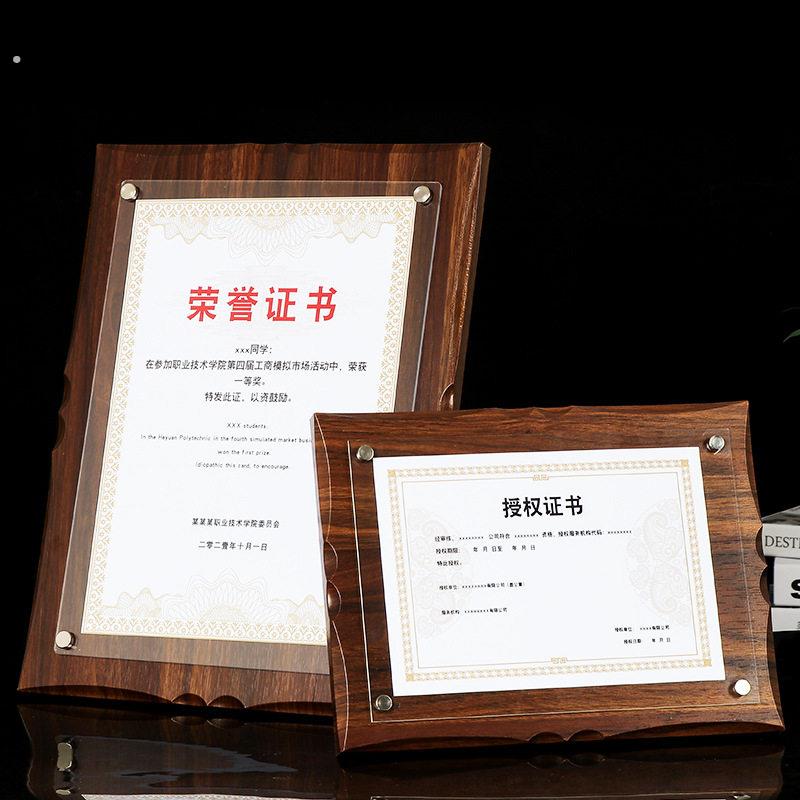 荣誉证书
xxx同学:
在参加职业技术学院第四届工商模拟市场活动中，荣获
一等奖。
特发此证，以资鼓励。
XXX students:
In the Heyuan Polytechnic in the fourth simulated market busi
won the first prize.
Idiopathic this card, to encourage.
某某某职业技术学院委员会
二零二壹年十月一日
授权证书
经审核， xxxxxxxx 公司符合 xxxxxxxx 资格，授权服务机构代码：xxxxxxxx
授权期限： 年 月 日至 年 月 日
特此授权。
授权单位：xxxxxxxx有限公司（盖公章）
服务机构：xxxxxxxxx有限公司
授权单位： xxxx有限公司
授权日期 年 月 日
DEST
S